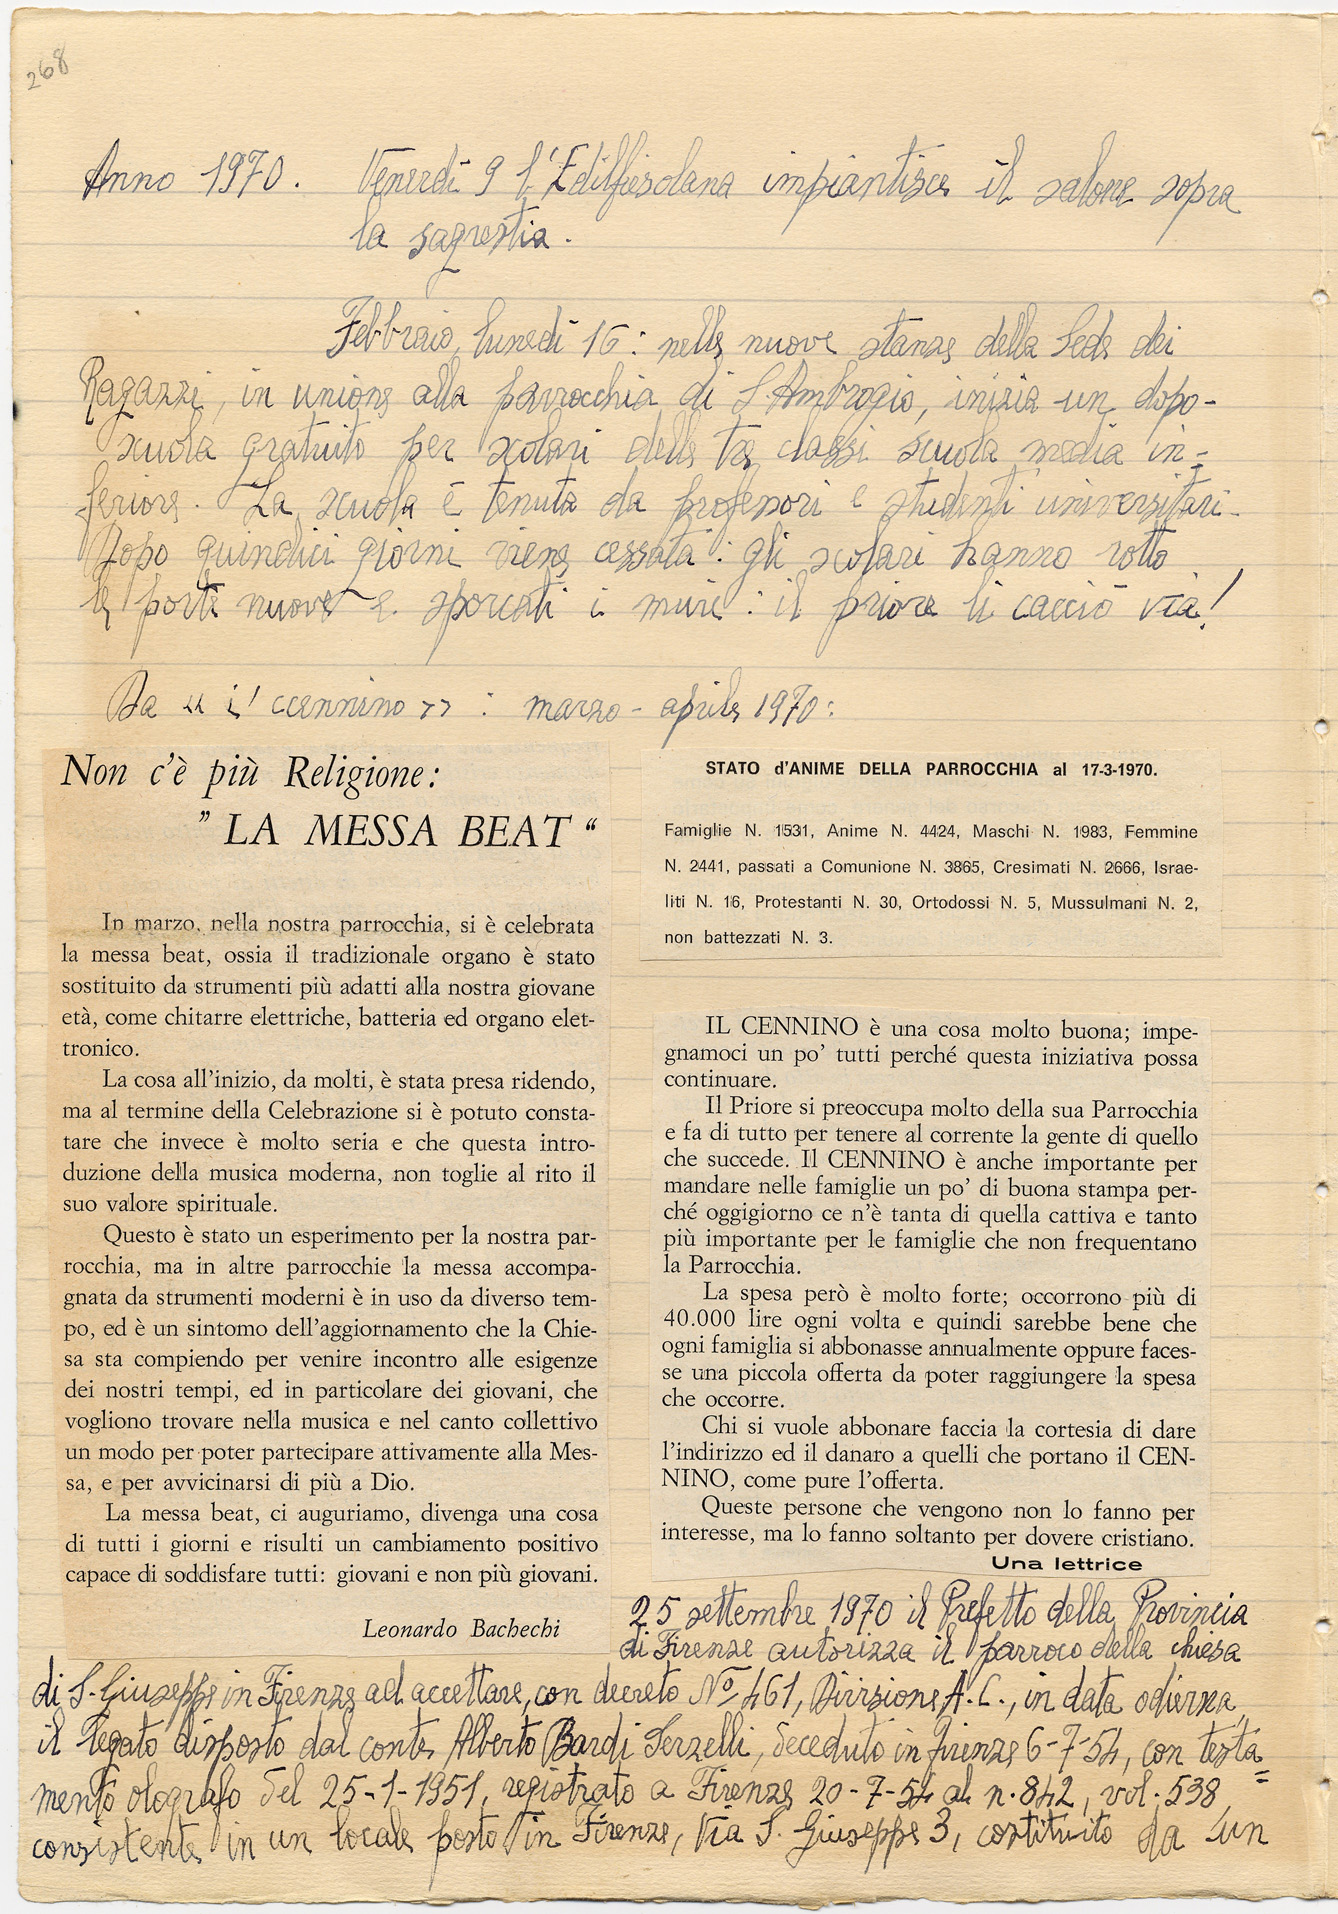 268
Anno 1970. Venerdì 9 l'Edilfiesolana impiantisce il salone sopra
la sagrestia.
Febbraio, lunedì 16: nelle nuove stanze della Sede dei
Ragazzi, in unione alla parrocchia di S. Ambrogio, inizia un dopo-
scuola gratuito per scolari delle tre classi scuola media in-
feriore. La scuola è tenuta da professori e studenti universitari.
Dopo quindici giorni viene cessata: gli scolari hanno rotto
le porte nuove e sporcati i muri: il priore li cacciò via!
Da « i' ccennino »: marzo - aprile 1970:
Non c'è più Religione:
” LA MESSA BEAT “
In marzo, nella nostra parrocchia, si è celebrata
la messa beat, ossia il tradizionale organo è stato
sostituito da strumenti più adatti alla nostra giovane
età, come chitarre elettriche, batteria ed organo elet-
tronico.
La cosa all'inizio, da molti, è stata presa ridendo,
ma al termine della Celebrazione si è potuto consta-
tare che invece è molto seria e che questa intro-
duzione della musica moderna, non toglie al rito il
suo valore spirituale.
Questo è stato un esperimento per la nostra par-
rocchia, ma in altre parrocchie la messa accompa-
gnata da strumenti moderni è in uso da diverso tem-
po, ed è un sintomo dell'aggiornamento che la Chie-
sa sta compiendo per venire incontro alle esigenze
dei nostri tempi, ed in particolare dei giovani, che
vogliono trovare nella musica e nel canto collettivo
un modo per poter partecipare attivamente alla Mes-
sa, e per avvicinarsi di più a Dio.
La messa beat, ci auguriamo, divenga una cosa
di tutti i giorni e risulti un cambiamento positivo
capace di soddisfare tutti: giovani e non più giovani.
Leonardo Bachechi
STATO d'ANIME DELLA PARROCCHIA al 17-3-1970.
Famiglie N. 1531, Anime N. 4424, Maschi N. 1983, Femmine
N. 2441, passati a Comunione N. 3865, Cresimati N. 2666, Israe-
liti N. 16, Protestanti N. 30, Ortodossi N. 5, Mussulmani N. 2,
non battezzati N. 3.
IL CENNINO è una cosa molto buona; impe-
gnamoci un po' tutti perché questa iniziativa possa
continuare.
Il Priore si preoccupa molto della sua Parrocchia
e fa di tutto per tenere al corrente la gente di quello
che succede. Il CENNINO è anche importante per
mandare nelle famiglie un po' di buona stampa per-
ché oggigiorno ce n'è tanta di quella cattiva e tanto
più importante per le famiglie che non frequentano
la Parrocchia.
La spesa però è molto forte; occorrono più di
40.000 lire ogni volta e quindi sarebbe bene che
ogni famiglia si abbonasse annualmente oppure faces-
se una piccola offerta da poter raggiungere la spesa
che occorre.
Chi si vuole abbonare faccia la cortesia di dare
l'indirizzo ed il danaro a quelli che portano il CEN-
NINO, come pure l'offerta.
Queste persone che vengono non lo fanno per
interesse, ma lo fanno soltanto per dovere cristiano.
Una lettrice
25 settembre 1970 il Prefetto della Provincia
di Firenze autorizza il parroco della chiesa
di S. Giuseppe in Firenze ad accettare, con decreto Nº 461, Divisione A.C., in data odierna,
il legato disposto dal conte Alberto Bardi Serzelli, deceduto in Firenze 6-7-54, con testa=
mento olografo del 25-1-1951, registrato a Firenze 20-7-54 al n. 842, vol. 538,
consistente in un locale posto in Firenze, Via S. Giuseppe 3, costituito da un